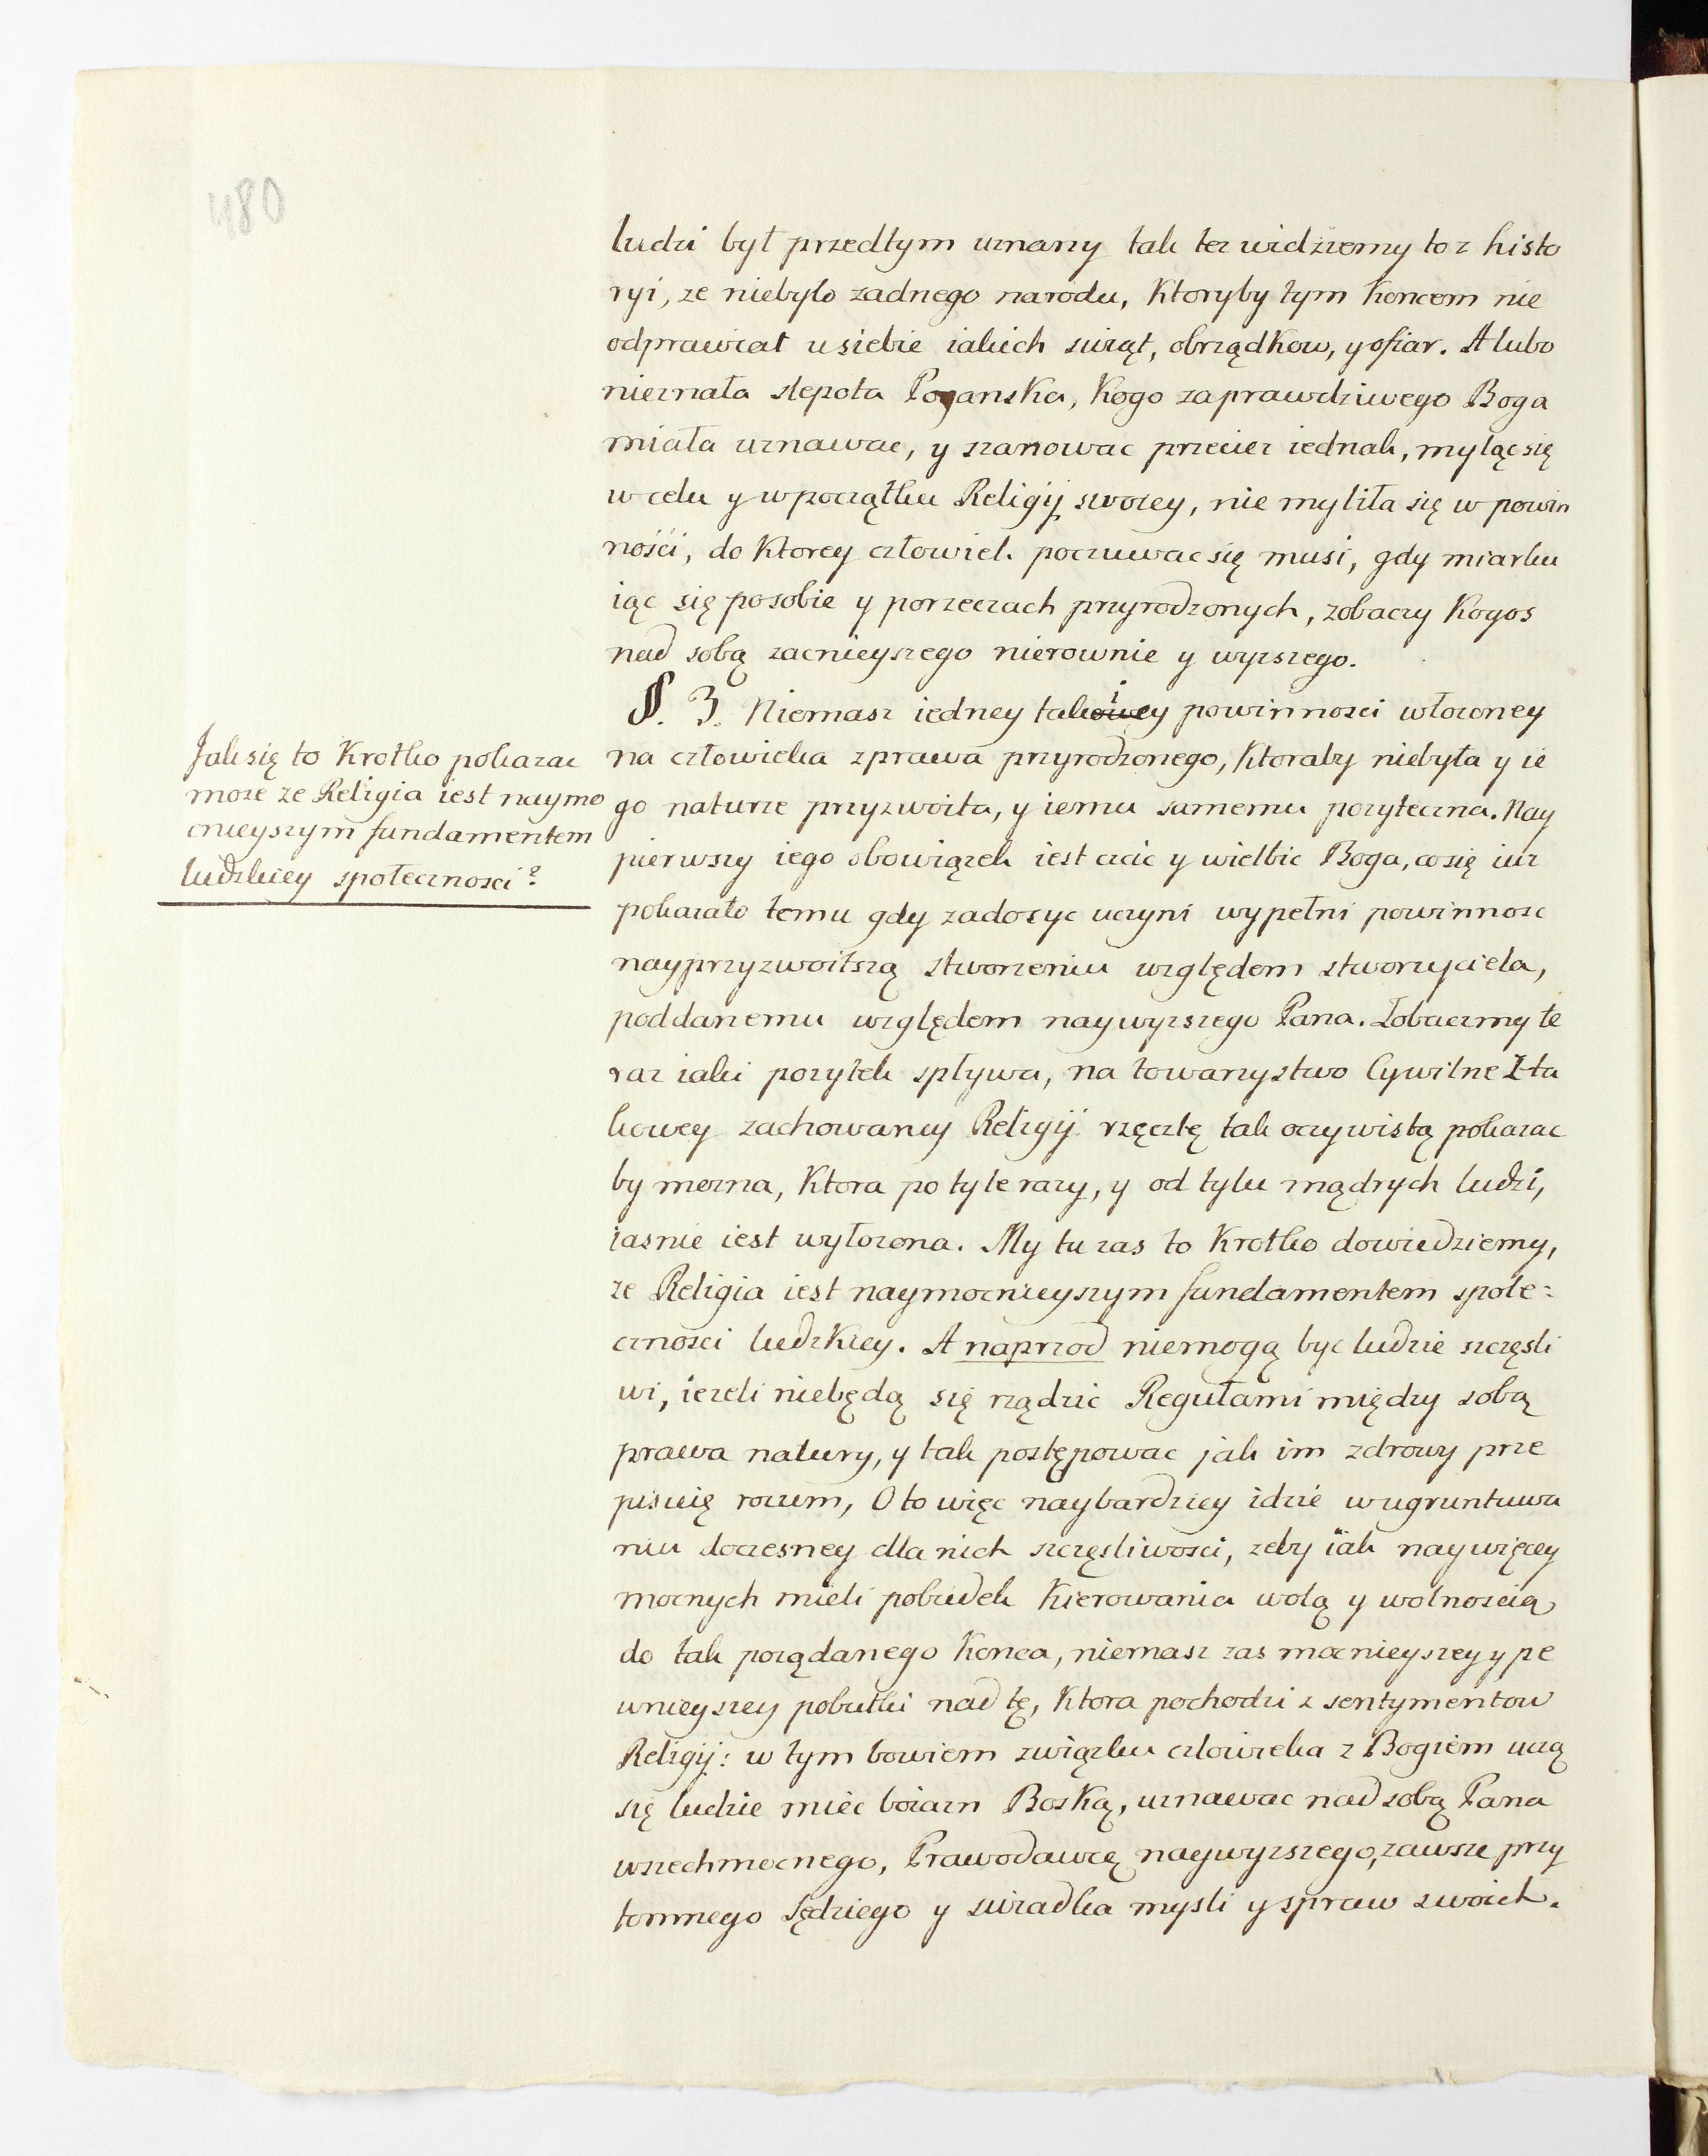 480
ludzi był przedtym uznany tak tez widziemy to z histo
ryi, ze niebyło zadnego narodu, Ktoryby tym Koncem nie
odprawiał u siebie iakich swiąt, obrządkow, y ofiar. A lubo
nieznała slepota Poganska, Kogo zaprawdziwego Boga
miała uznawac, y szanowac przeciez iednak, myląc się
w celu y w początku Religij swoiey, nie myliła się w powin
nosci, do Ktorey człowiek poczuwac się musi, gdy miarku
iąc się po sobie y po rzeczach przyrodzonych, zobaczy Kogos
nad sobą zacnieyszego nierownie y wyzszego.
§. 3. Niemasz iedney takiey powinnosci włozoney
na człowieka z prawa przyrodzonego, Ktoraby niebyła y ie
go naturze przyzwoita, y iemu samemu pozyteczna. Nay
pierwszy iego obowiązek iest czcic y wielbic Boga, co się iuz
pokazało temu gdy zadosyc uczyni wypełni powinnosc
nayprzyzwoitszą stworzeniu względem stworzyciela,
poddanemu względem naywyzszego Pana. Zobaczmy te
raz iaki pozytek spływa, na towarzystwo Cywilne z ta
kowey zachowaney Religij rzęcztę tak oczywistą pokazac
by mozna, Ktora po tyle razy, y od tylu mądrych ludzi,
iasnie iest wyłozona. My tu zas to Krotko dowiedziemy,
ze Religia iest naymocnieyszym fundamentem społe:
cznosci ludzkiey. A naprzod niemogą byc ludzie szczęsli
wi, iezeli niebędą się rządzic Regułami między sobą
prawa natury, y tak postępowac jak im zdrowy prze
pisuię rozum, O to więc naybardziey idzie w ugruntuwa
niu doczesney dla nich szczęsliwosci, zeby iak naywięcey
mocnych mieli pobudek Kierowania wolą y wolnoscią
do tak poządanego Konca, niemasz zas mocnieyszey y pe
wnieyszey pobutki nad tę, Ktora pochodzi z sentymentow
Religij: w tym bowiem związku człowieka z Bogiem uczą
się ludzie miec boiazn Boską, uznawac nad sobą Pana
wszechmocnego, Prawodawcę naywyzszego, zawsze przy
tomnego sędziego y swiadka mysli y spraw swoich.
Jak się to Krotko pokazac
moze ze Religia iest naymo
cnieyszym fundamentem
ludzkiey społecznosci?